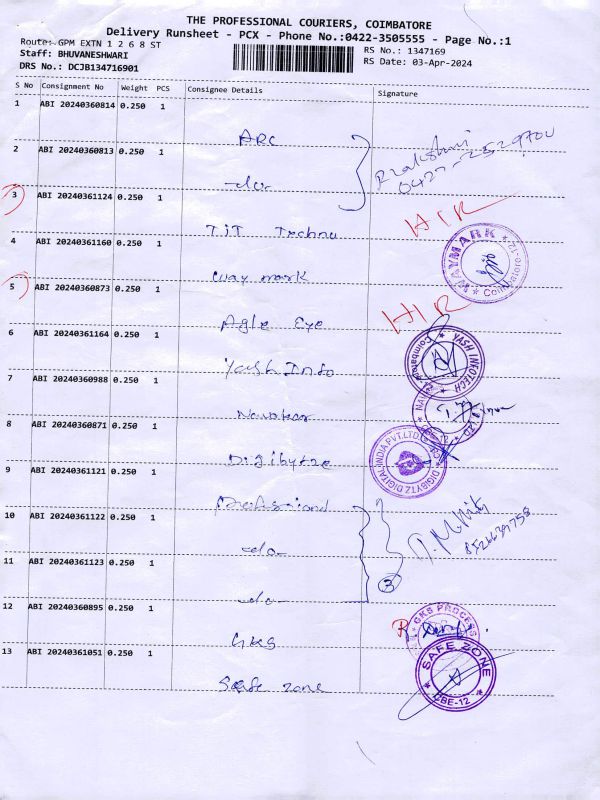 THE PROFESSIONAL COURIERS, COIMBATORE
Delivery Runsheet - PCX - Phone No.:0422-3505555 - Page No.:1
Route: GPM EXTN 1 2 6 8 ST
RS No.: 1347169
Staff: BHUVANESHWARI
RS Date: 03-Apr-2024
DRS No.: DCJB134716901
S No Consignment No Weight PCS Consignee Details Signature
1 ABI 20240360814 0.250 1
ARC
2 ABI 20240360813 0.250 1
-do-
3 ABI 20240361124 0.250 1
HIR
TIT Techno
4 ABI 20240361160 0.250 1
WAYMARK Coimbatore-12
Way mark
5 ABI 20240360873 0.250 1
HIR
Agle Eye
6 ABI 20240361164 0.250 1
YASH INFOTECH Coimbatore-12
Yash Info
7 ABI 20240360988 0.250 1
Navakar
8 ABI 20240360871 0.250 1
DIGIBYTZ DIGITAL INDIA PVT.LTD
Digibytze
9 ABI 20240361121 0.250 1
Professional
10 ABI 20240361122 0.250 1
8526639758
-do-
11 ABI 20240361123 0.250 1
3
-do-
12 ABI 20240360895 0.250 1
R GKS PROCESS
GKS
13 ABI 20240361051 0.250 1
SAFE ZONE CBE-12
Safe zone